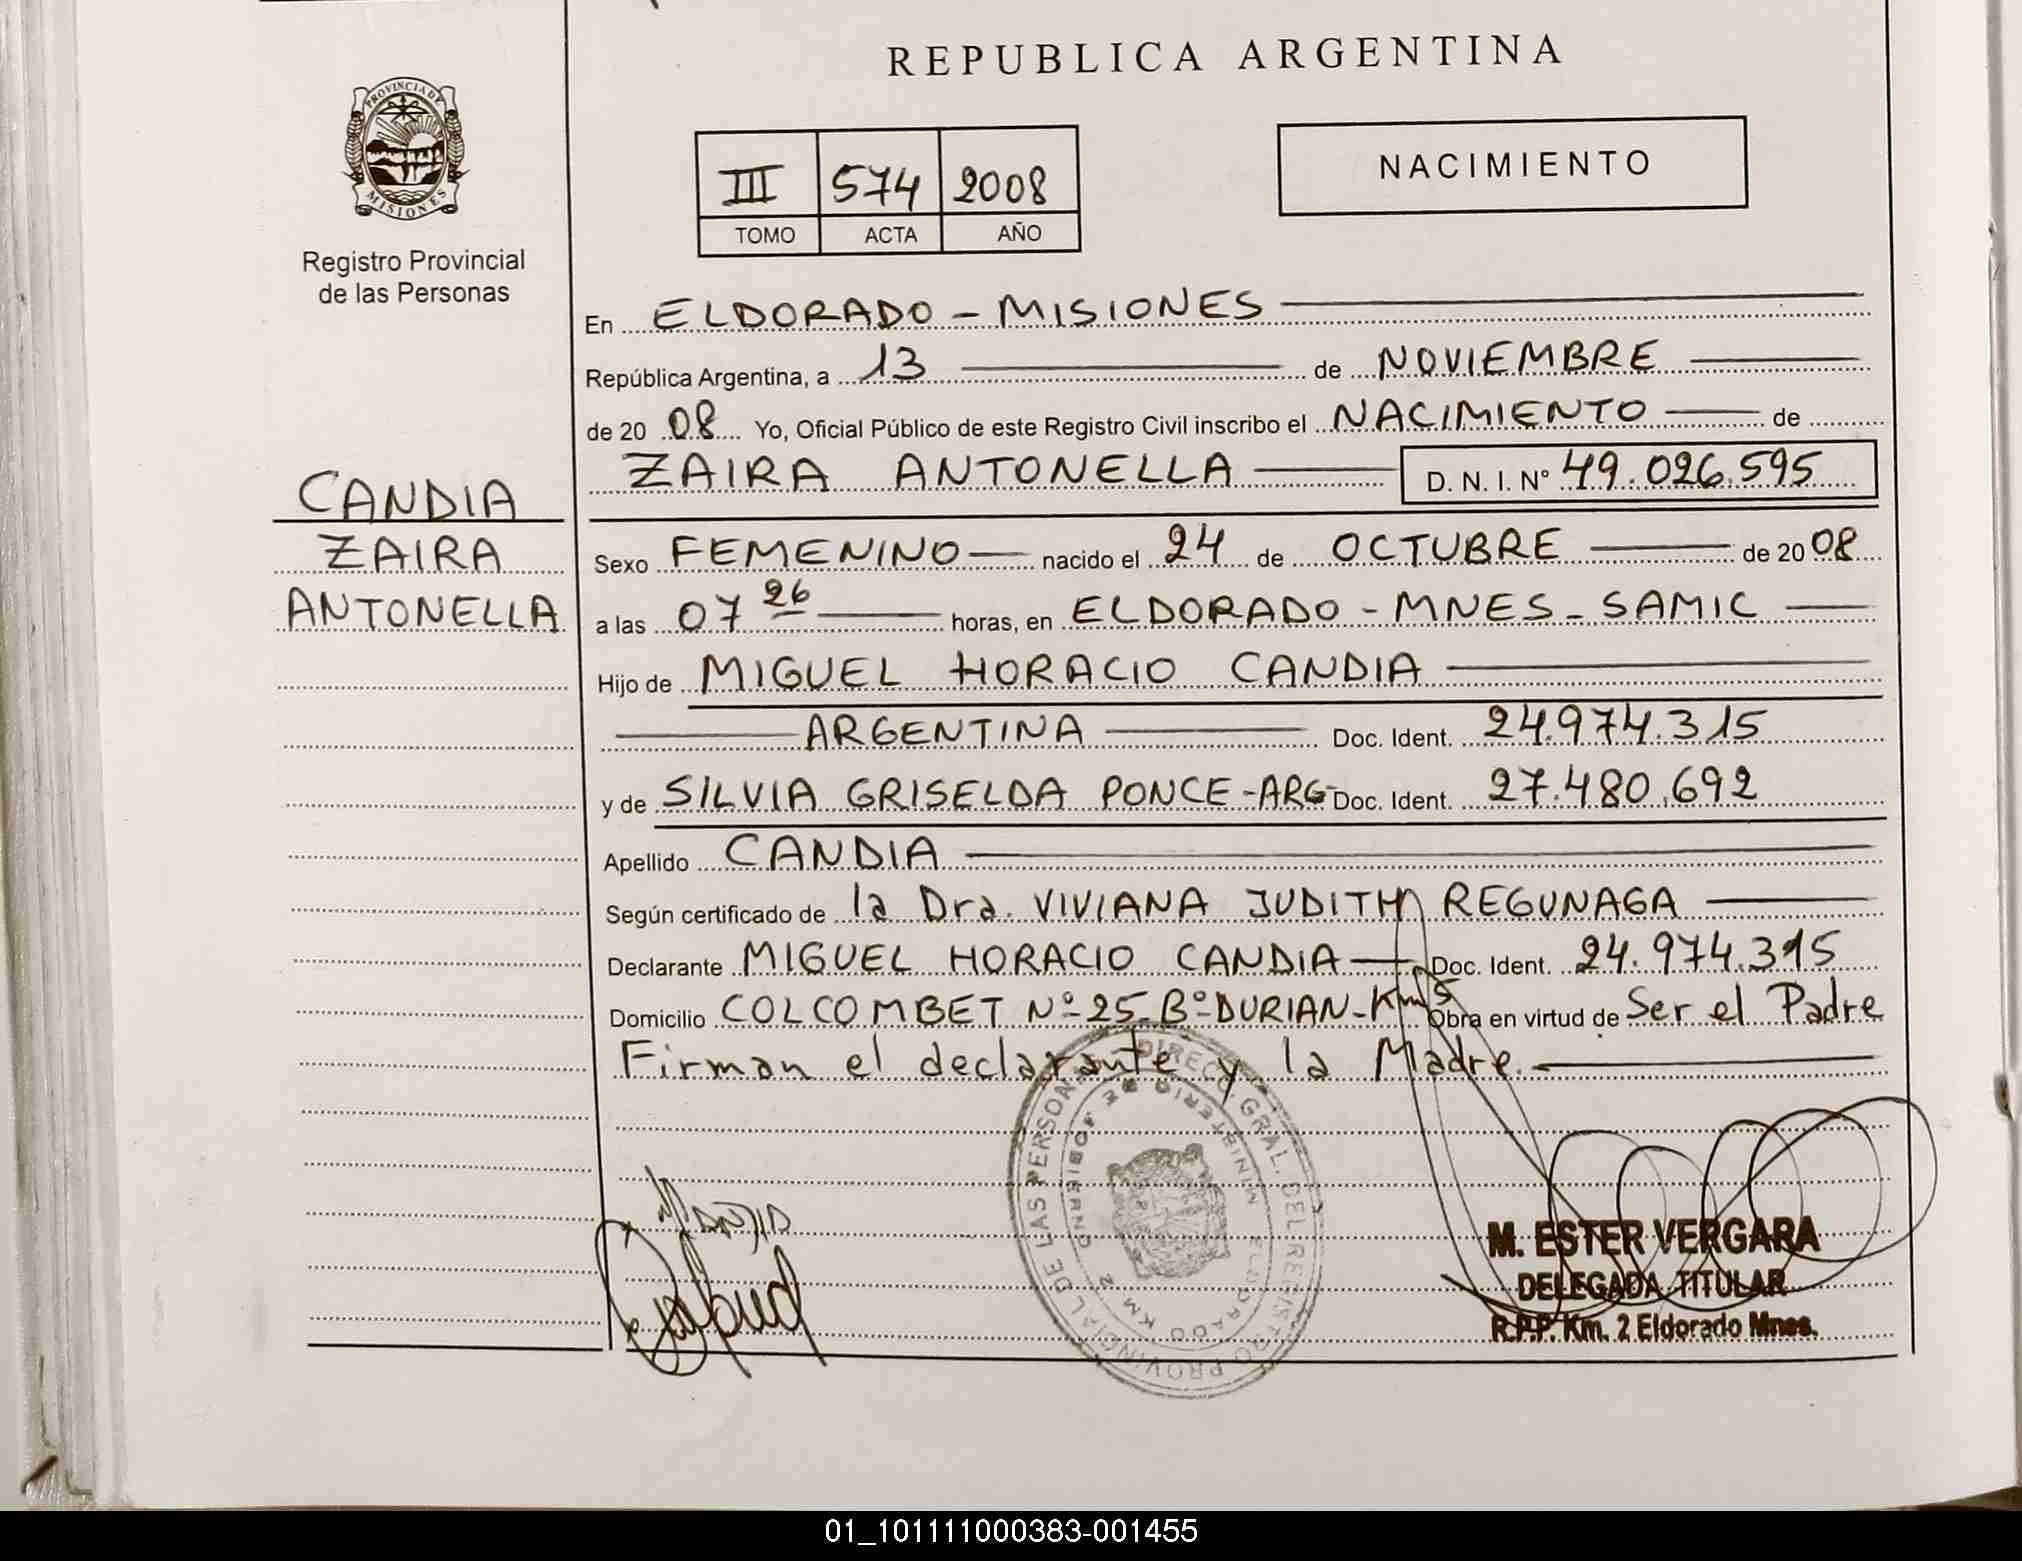 REPUBLICA ARGENTINA
PROVINCIA DE MISIONES
Registro Provincial
de las Personas
III 574 2008
TOMO ACTA AÑO
NACIMIENTO
En ELDORADO - MISIONES
República Argentina, a 13 de NOVIEMBRE
de 2008 Yo, Oficial Público de este Registro Civil inscribo el NACIMIENTO de
ZAIRA ANTONELLA D. N. I. Nº 49.026.595
CANDIA
ZAIRA
ANTONELLA
Sexo FEMENINO nacido el 24 de OCTUBRE de 2008
a las 07 26 horas, en ELDORADO - MNES - SAMIC
Hijo de MIGUEL HORACIO CANDIA
ARGENTINA Doc. Ident. 24.974.315
y de SILVIA GRISELDA PONCE - ARG- Doc. Ident. 27.480.692
Apellido CANDIA
Según certificado de la Dra. VIVIANA JUDITH REGUNAGA
Declarante MIGUEL HORACIO CANDIA Doc. Ident. 24.974.315
Domicilio COLCOMBET Nº 25 - Bº DURIAN - Km 5 Obra en virtud de Ser el Padre
Firman el declarante y la Madre.
DIREC. GRAL. DEL REGISTRO PROVINCIAL DE LAS PERSONAS
MINISTERIO DE GOBIERNO
ELDORADO KM 2
M. ESTER VERGARA
DELEGADA TITULAR
R.P.P. Km. 2 Eldorado Mnes.
01_101111000383-001455